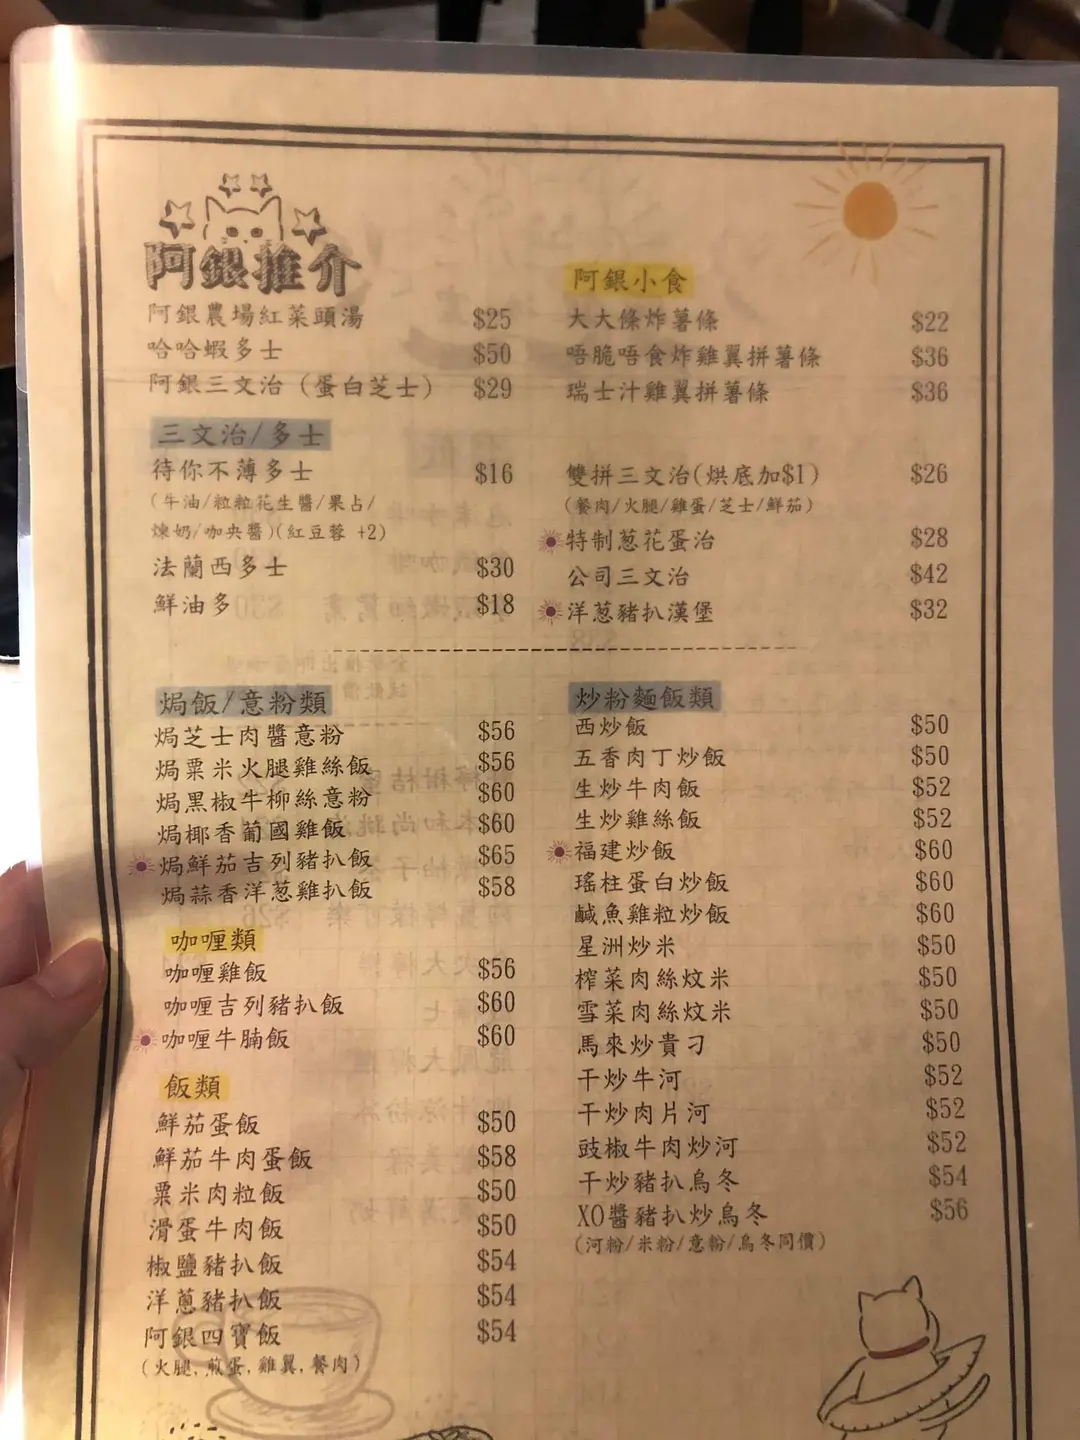 阿銀推介
阿銀農場紅菜頭湯 $25
哈哈蝦多士 $50
阿銀三文治（蛋白芝士） $29
阿銀小食
大大條炸薯條 $22
唔脆唔食炸雞翼拼薯條 $36
瑞士汁雞翼拼薯條 $36
三文治/多士
待你不薄多士 $16
(牛油/粒粒花生醬/果占/
煉奶/咖央醬)(紅豆蓉 +2)
法蘭西多士 $30
鮮油多 $18
雙拼三文治(烘底加$1) $26
(餐肉/火腿/雞蛋/芝士/鮮茄)
特制葱花蛋治 $28
公司三文治 $42
洋葱豬扒漢堡 $32
焗飯/意粉類
焗芝士肉醬意粉 $56
焗粟米火腿雞絲飯 $56
焗黑椒牛柳絲意粉 $60
焗椰香葡國雞飯 $60
焗鮮茄吉列豬扒飯 $65
焗蒜香洋葱雞扒飯 $58
咖喱類
咖喱雞飯 $56
咖喱吉列豬扒飯 $60
咖喱牛腩飯 $60
飯類
鮮茄蛋飯 $50
鮮茄牛肉蛋飯 $58
粟米肉粒飯 $50
滑蛋牛肉飯 $50
椒鹽豬扒飯 $54
洋蔥豬扒飯 $54
阿銀四寶飯 $54
(火腿,煎蛋,雞翼,餐肉)
炒粉麵飯類
西炒飯 $50
五香肉丁炒飯 $50
生炒牛肉飯 $52
生炒雞絲飯 $52
福建炒飯 $60
瑤柱蛋白炒飯 $60
鹹魚雞粒炒飯 $60
星洲炒米 $50
榨菜肉絲炆米 $50
雪菜肉絲炆米 $50
馬來炒貴刁 $50
干炒牛河 $52
干炒肉片河 $52
豉椒牛肉炒河 $52
干炒豬扒烏冬 $54
XO醬豬扒炒烏冬 $56
(河粉/米粉/意粉/烏冬同價)